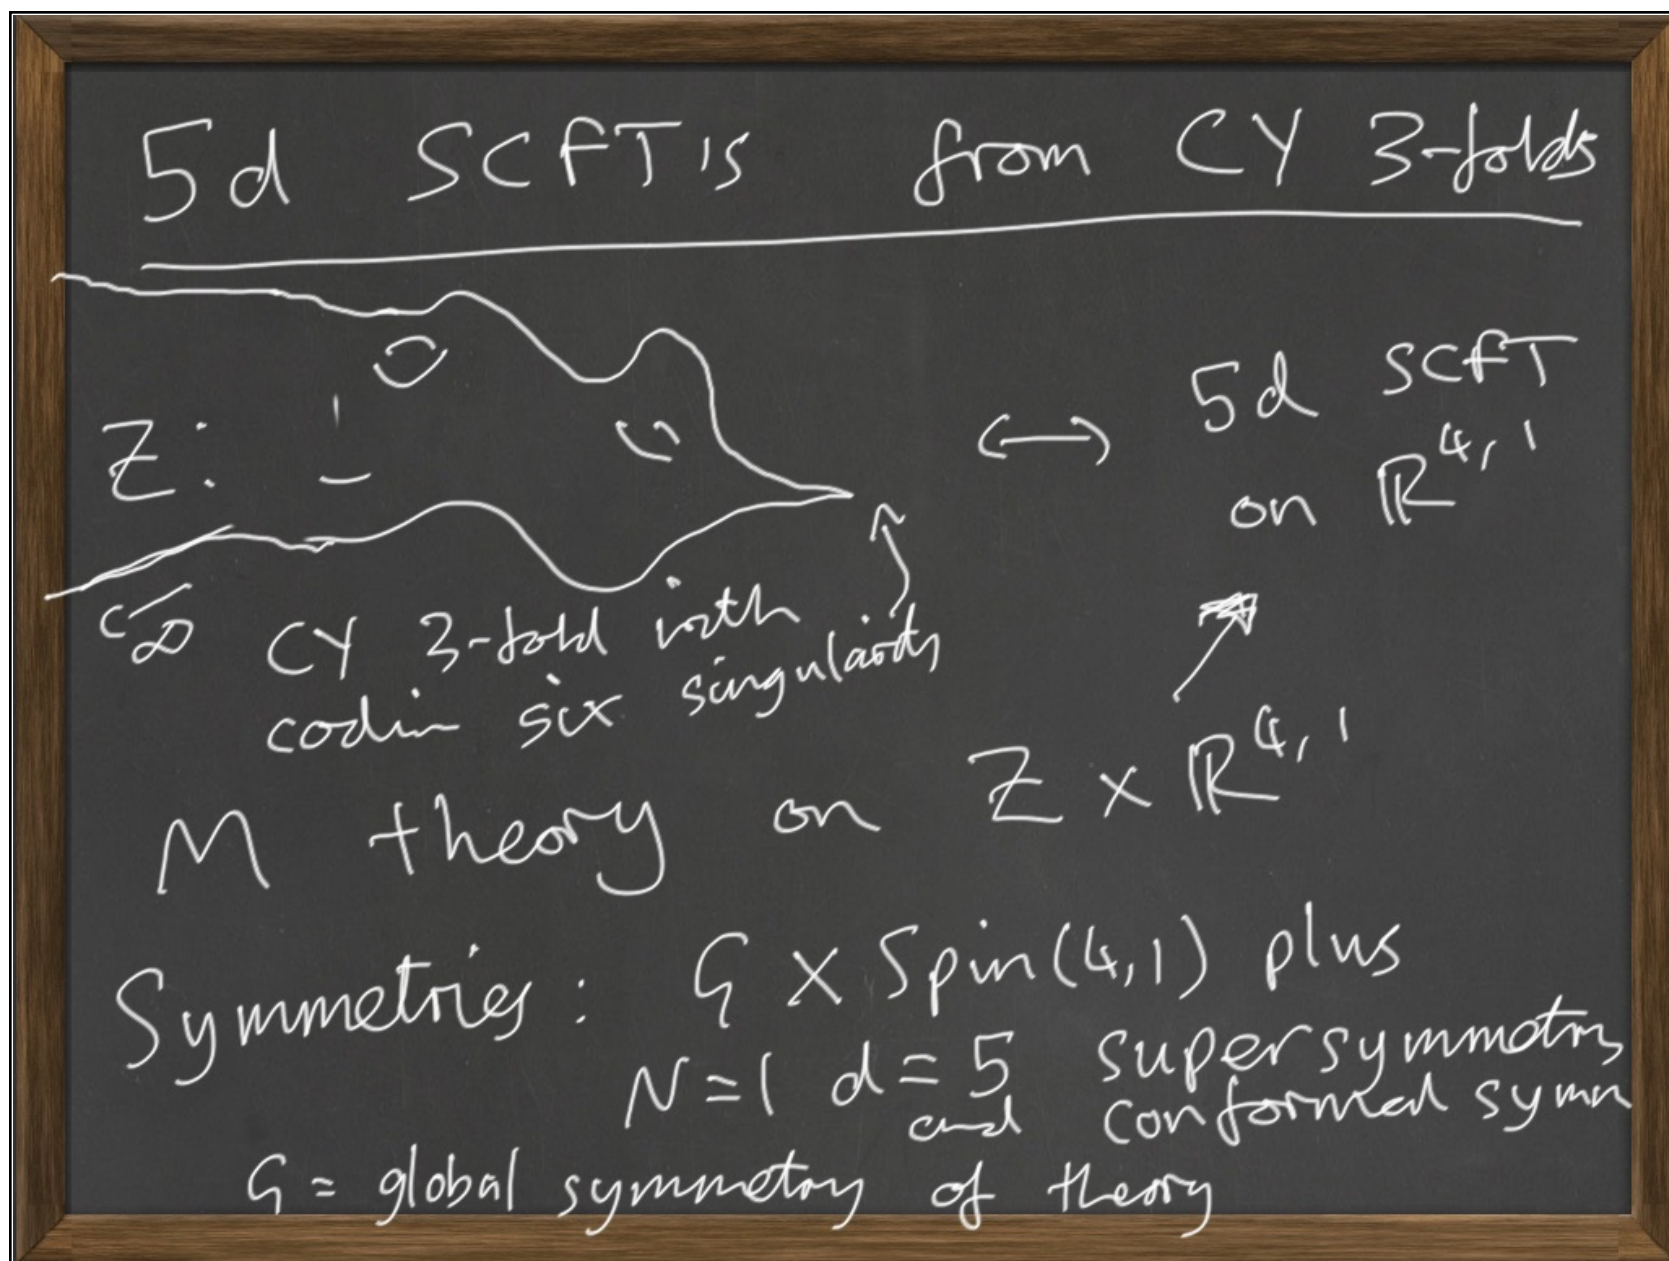 5d SCFT's from CY 3-folds
Z:
↔ 5d SCFT
on ℝ^{4,1}
∞ CY 3-fold with
codim six singularity
M theory on Z × ℝ^{4,1}
Symmetries: G × Spin(4,1) plus
N=1 d=5 supersymmetry
and conformal symm
G = global symmetry of theory